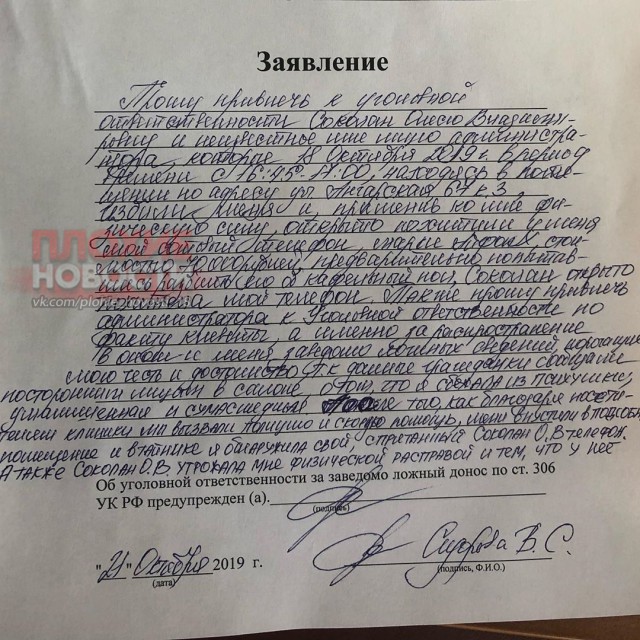 Заявление
Прошу привлечь к уголовной
ответственности Соколан Олесю Владими-
ровну и неизвестное мне лицо администра-
тора, которые 18 октября 2019 г. в период
времени с 16:45-17:00, находясь в поме-
щении по адресу ул. Ангарская 67 к.3
избили меня и, применив ко мне фи-
зическую силу, открыто похитили у меня
мой сотовый телефон, марки Айфон X, стои-
мостью рублей, предварительно попытав-
шись разбить его о кафельный пол, Соколан открыто
похитила мой телефон. Также прошу привлечь
администратора к уголовной ответственности по
факту клеветы, а именно за распространение
в отношении меня заведомо ложных сведений, порочащих
мою честь и достоинство т.к данные гражданки сообщали
посторонним лицам в салоне о том, что я сбежала из психушки,
умалишенная и сумасшедшая. После того, как благодаря посети-
телям клиники мы вызвали полицию и скорую помощь, меня впустили в подсобное
помещение и в тайнике я обнаружила свой, спрятанный Соколан О,В телефон.
А также Соколан О.В. угрожала мне физической расправой и тем, что у нее
Об уголовной ответственности за заведомо ложный донос по ст. 306
УК РФ предупрежден (а).
(подпись)
Сидорова В.С.
"21" Октября 2019 г.
(дата)
(подпись, Ф.И.О.)
НОВОСТИ